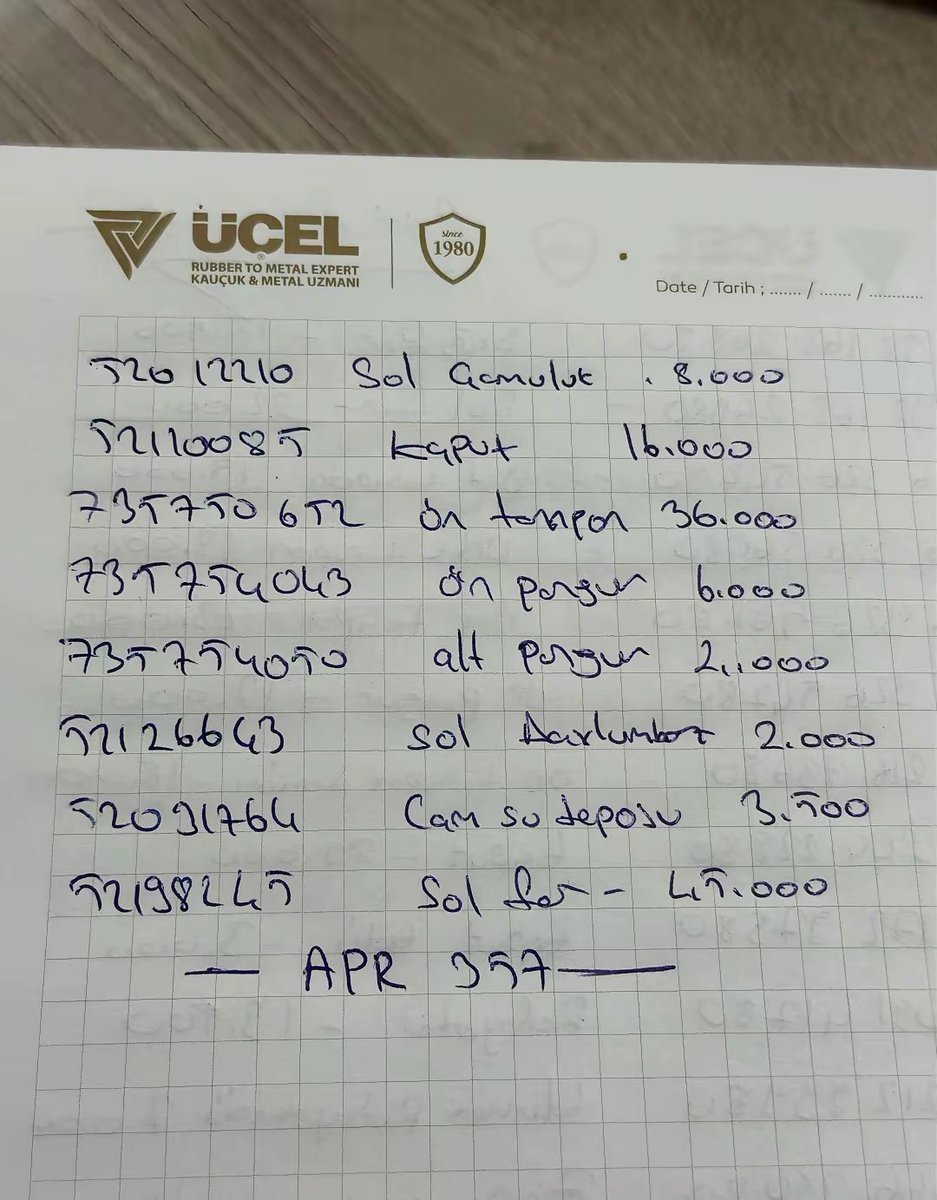 ÜÇEL
RUBBER TO METAL EXPERT
KAUÇUK & METAL UZMANI
since
1980
Date / Tarih ; ....... / ....... / ............
52012210 Sol Çamuluk . 8.000
52120085 Kaput 16.000
735750652 ön tampon 36.000
735754043 ön pangur 6.000
735754050 alt pangur 2.000
52126643 sol Davlumbaz 2.000
52091764 Cam su deposu 3.500
52198245 Sol far - 45.000
— APR 357 —